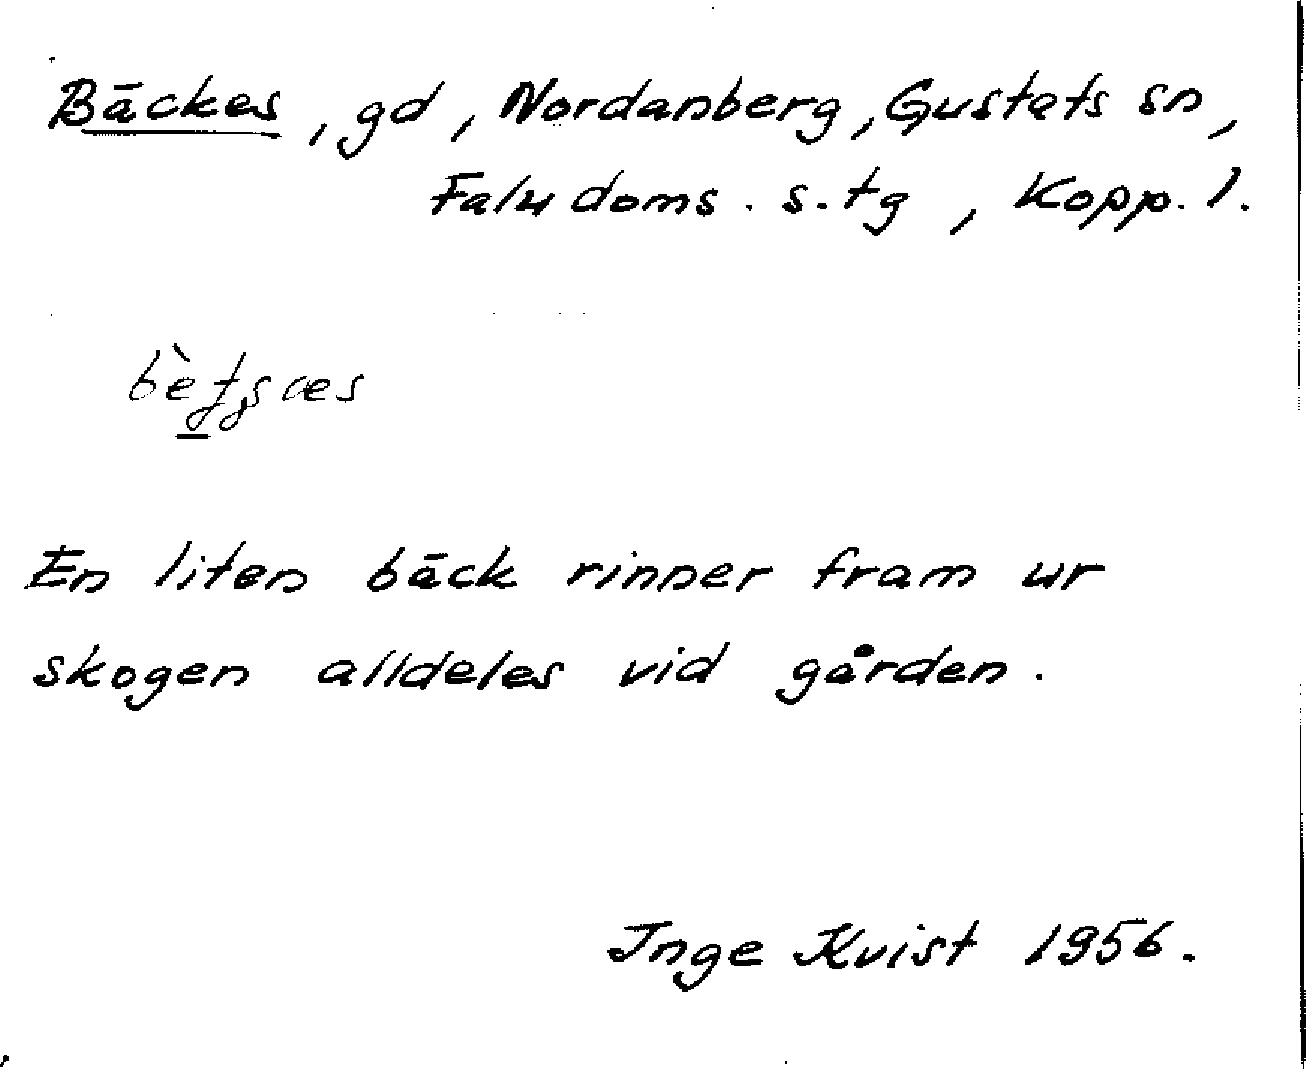 Bäckes, gd, Nordanberg, Gustafs sn,
Falu doms. s. tg, Kopp. l.
En liten bäck rinner fram ur
skogen alldeles vid gården.
Inge Kvist 1956.